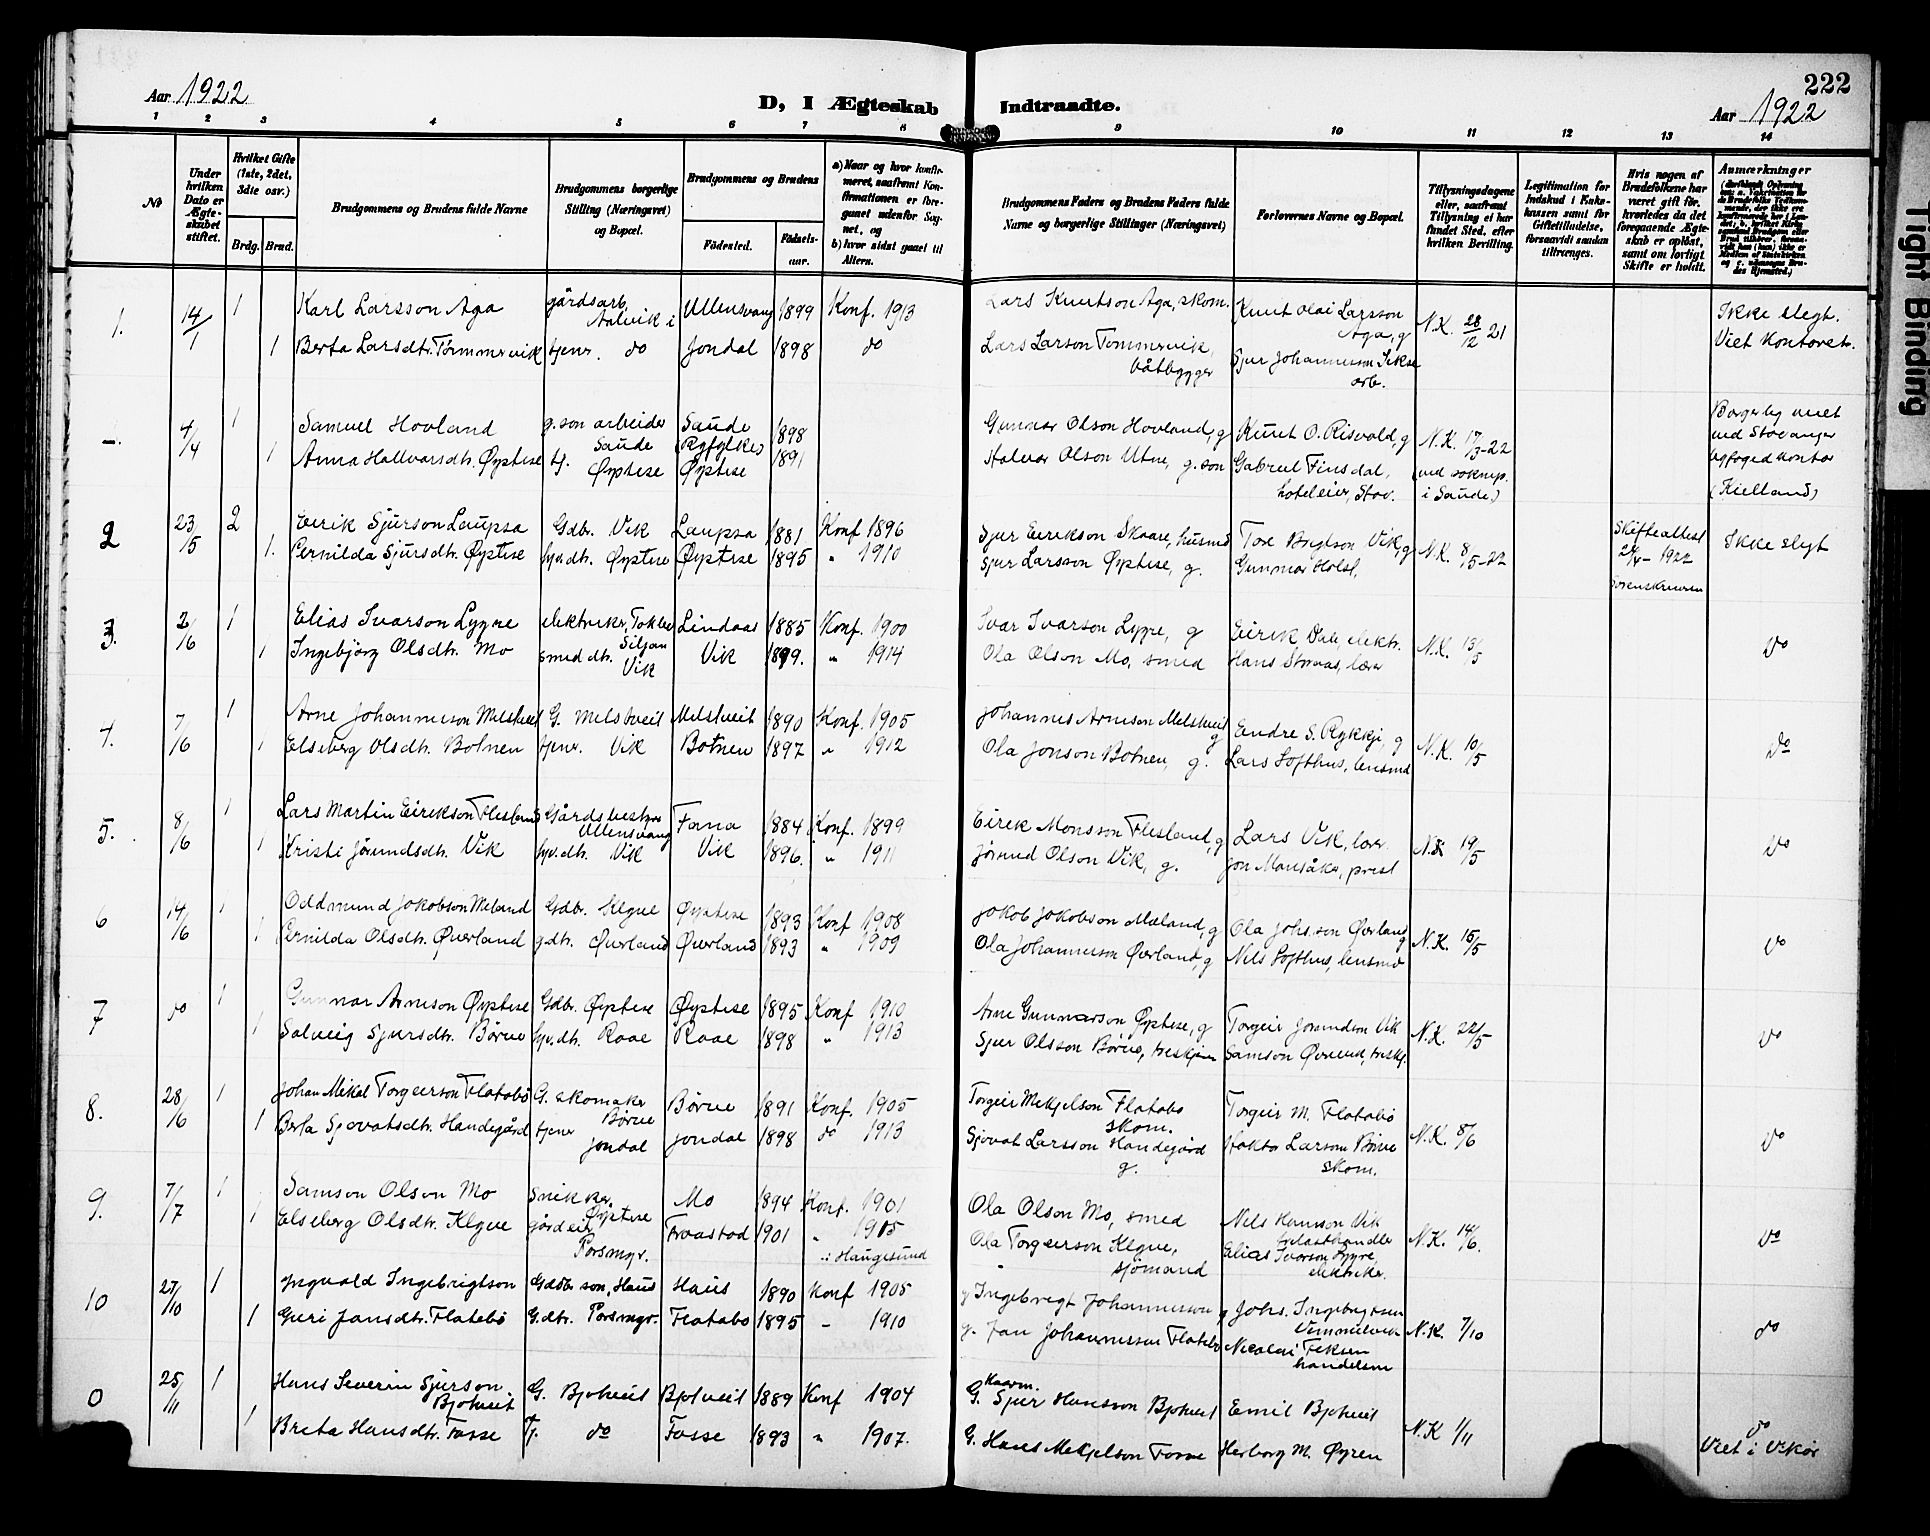 222
Aar 1922
D, I Ægteskab Indtraadte.
Aar 1922
1 2 3 4 5 6 7 8 9 10 11 12 13 14
No
Under hvilken Dato er Ægteskabet stiftet.
Hvilket Gifte (1ste, 2det, 3die osv.)
Brdg. Brud.
Brudgommens og Brudens fulde Navne
Brudgommens borgerlige Stilling (Næringsvei) og Bopæl.
Brudgommens og Brudens
Fødested. Fødselsaar.
a) Naar og hvor konfirmeret, saafremt Konfirmationen er foregaaet udenfor Sognet, og
b) hvor sidst gaaet til Alters.
Brudgommens Faders og Brudens Faders fulde Navne og borgerlige Stillinger (Næringsvei)
Forlovernes Navne og Bopæl.
Tillysningsdagene eller, saafremt Tillysning ei har fundet Sted, efter hvilken Bevilling.
Legitimation for Indskud i Enkekassen samt for Giftetilladelse, forsaavidt saadan tiltrænges.
Hvis nogen af Brudefolkene har været gift før, hvorledes da det foregaaende Ægteskab er opløst, samt om lovligt Skifte er holdt.
Anmærkninger
1. 14/1 1 Karl Larsson Aga gårdsarb, Aalvik i Ullensvang 1899 Konf. 1913 Lars Knutson Aga, skom. Knut Olai Larsson Aga, g N.K. 28/12 21 Ikke slegt.
1 Berta Larsdtr. Tømmervik tjener. do Jondal 1898 do Lars Larson Tømmervik, båtbygger Sjur Johannesson arb. Viet Kontoret.
- 4/4 1 Samuel Hovland g.son arbeider Saude Saude (Ryfylke) 1898 Gunnar Olson Hovland, g Knut O. Risvold, g N.K. 17/3-22 Borgerleg viet ved Stavanger byfogedkontor
1 Anna Hallvarsdtr. Øystese tj. Øystese Øystese 1891 Halvor Olson Utne, g.son Gabriel Finsdal, hoteleier, Stav. (ved soknep. i Saude.) (Kielland)
2 23/5 2 Eirik Sjurson Laupsa Gdbr. Vik Laupsa 1881 Konf 1896 Sjur Eirikson Skaare, husmd Tore Vik, g N.K. 8/5-22 Skifteattest 24/4-1922 Ikke slegt
1. Pernilda Sjursdtr. Øystese Øystese Øystese 1895 " 1910 Sjur Larsson Øystese, g. Gunnar Holst, Sorenskriveren
3. 2/6 1 Elias Ivarson Lygre elektriker, Lindaas 1885 Konf. 1900 Ivar Ivarson Lygre, g Eirik Dale, elektr. N.K. 13/5 do
1 Ingebjörg Olsdtr. Mo smeddtr. Vik Vik 1899. " 1914 Ola Olson Mo, smed Hans Storaas, lærer
4. 7/6 1 Arne Johannesson Melstveit G. Melstveit Melstveit 1890 Konf. 1905 Johannes Arneson Melstveit g Endre S. Rykkje, g N.K. 10/5 do
1 Elseberg Olsdtr. Botnen tjener. Vik Botnen 1897 " 1912 Ola Jonson Botnen, g. Lars Softhus, lensmd
5. 8/6 1 Lars Martin Eirikson Flesland Gårdsbestyr Ullensvang Fana 1884 Konf. 1899 Eirik Monsson Flesland, g Lars Vik, lærer. N.K 19/5 do
1 Kristi Jörundsdtr. Vik Vik Vik 1896. " 1911 Jörund Olson Vik, g. Jon Mannsåker, prest
6 14/6 1 Oddmund Jakobson Meland Gdbr. Klyve Øystese 1893 Konf 1908 Jakob Jakobson Mæland, g Ola Johs.son Øverland g N.K. 15/5 do
1 Pernilda Olsdtr. Øverland gdtr. Øverland Øverland 1893 " 1909 Ola Johannesson Øverland, g Nils Softhus, lensmd
7 do 1 Gunnar Arneson Øystese Gdbr. Øystese Øystese 1895 Konf 1910 Arne Gunnarson Øystese, g Torgeir Jörundson Vik N.K. 22/5 do
1 Solveig Sjursdtr. Børve Raae Raae 1898 " 1913 Sjur Olsson Børve, treskjærer Samson treskj.
8. 28/6 1 Johan Mikal Torgeirson Flatabø G. skomaker Børve Børve 1891 Konf. 1905 Torgeir Mikkjelson Flatabø skom. Torgeir M. Flatabø N.K. 8/6 do
1 Berta Sjovatsdtr. Handegård tjener Jondal Jondal 1898 do 1913 Sjovat Larsson Handegård g. Larson Børve skom.
9. 7/7 1 Samson Olson Mo Snikker, Øystese Mo 1894 Konf. 1901 Ola Olson Mo, smed Nils Hansson Vik N.K. 14/6. do
1 Elseberg Olsdtr. Klyve Porsmyr. Fraastad 1901 " 1915 i Haugesund Ola Torgeirson Klyve, sjömand Elias Ivarson Lygre, elektriker.
10 27/10 1 Ingvald Ingebrigtson Gdbr son, Haus Haus 1890 Konf 1905 g Ingebrigt Johannesson g Johs. Ingebrigtsen N.K. 7/10 do
1 Guri Jansdtr. Flatebø G.dtr. Porsmyr. Flatabø 1895 - 1910 g. Jan Johannesson Flatebø Nicolai Teksen handelsm
0 25/11 1 Hans Severin Sjurson Bjotveit G. Bjotveit Bjotveit 1889 Konf 1904 G. Sjur Hansson Bjotveit Emil Bjotveit N.K 1/11 do
1 Breta Hansdtr. Fosse Tj. do Fosse 1893 " 1907. G. Hans Mikkjelson Fosse Herborg M. Øyren Viet i Vikør
Tight Binding